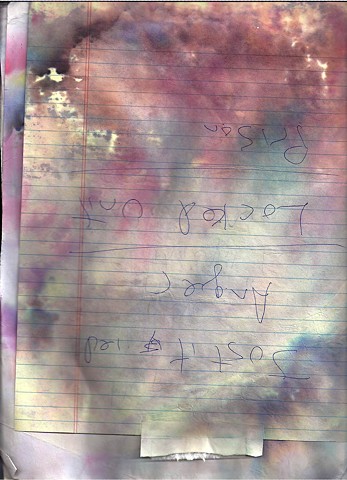 Justified
Anger
Locked Out
Prison